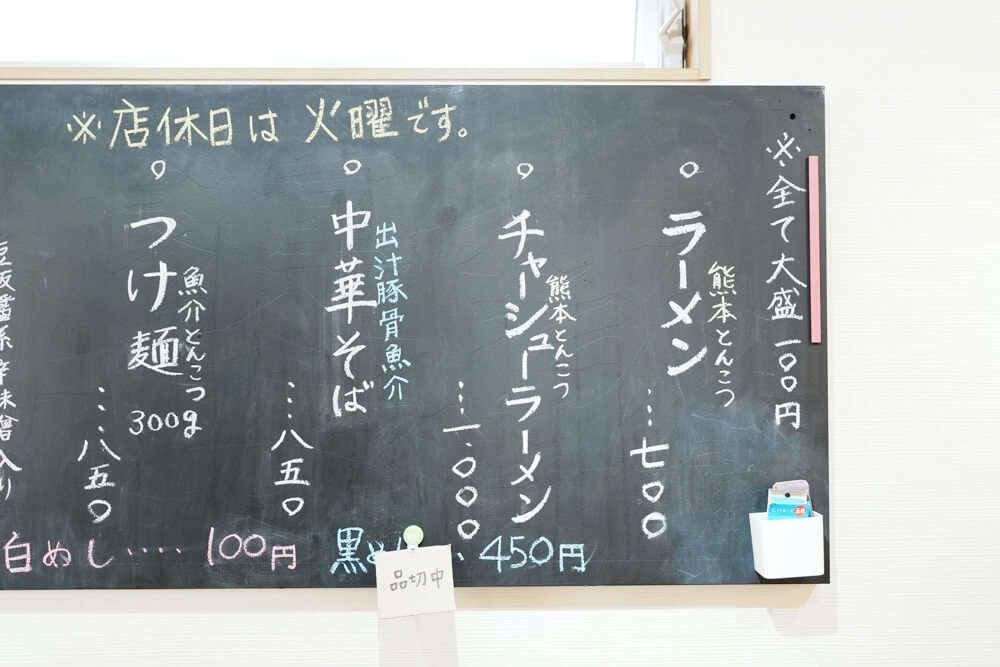 ※店休日は火曜です。
※全て大盛一〇〇円
○ラーメン…七〇〇
熊本とんこつ
○チャーシューラーメン…一.〇〇〇
熊本とんこつ
○中華そば…八五〇
出汁豚骨魚介
○つけ麺300g…八五〇
魚介とんこつ
豆板醤系辛味噌入り
白めし‥‥100円
黒め
‥450円
品切中
CHALK